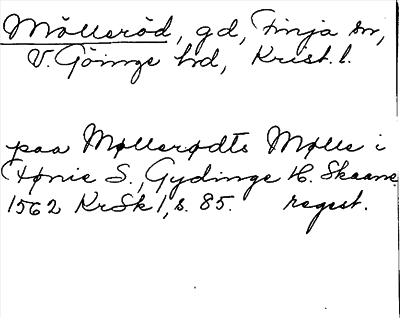 Möllseröd, gd, Finja sn,
V. Göinge hd, Krist. l.
paa Møllserødts Mølle i
Fønie S., Gydinge H. Skaane
1562 KrSk 1, s. 85. regest.